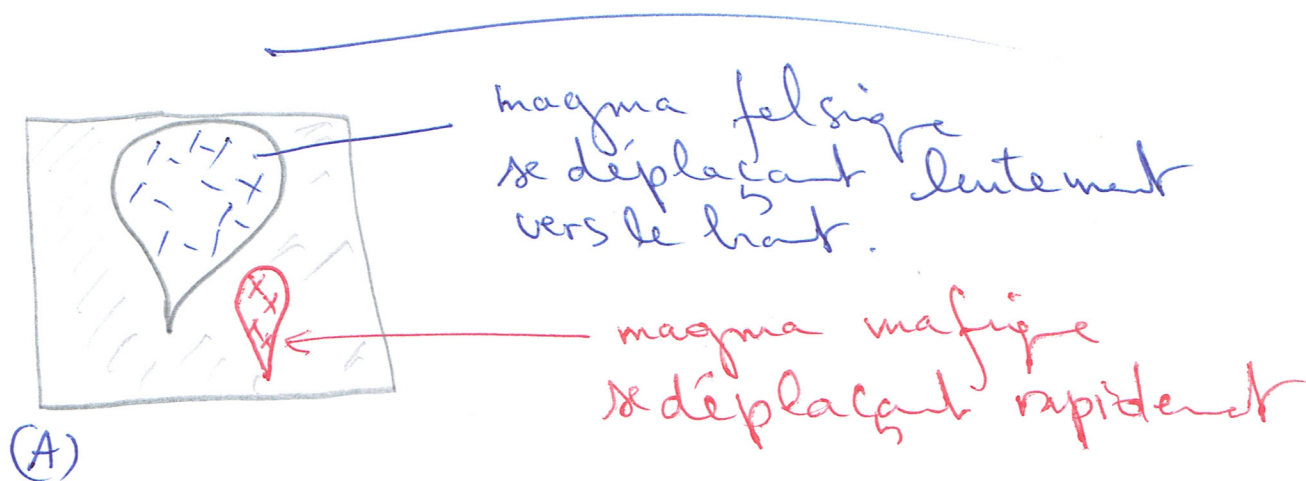 magma felsique
se déplaçant lentement
vers le haut.
magma mafique
se déplaçant rapidement
(A)